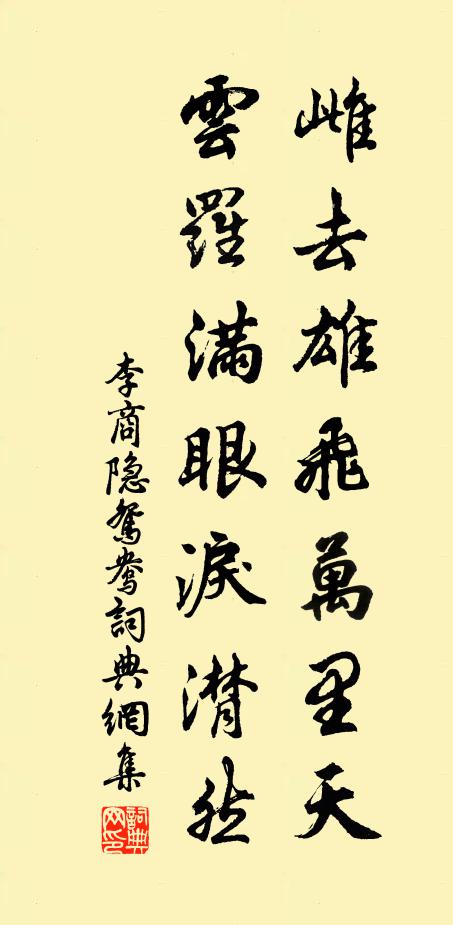 雌去雄飛萬里天
雲羅滿眼淚潸然
李商隐鴛鴦詞典網集
詞典
网印